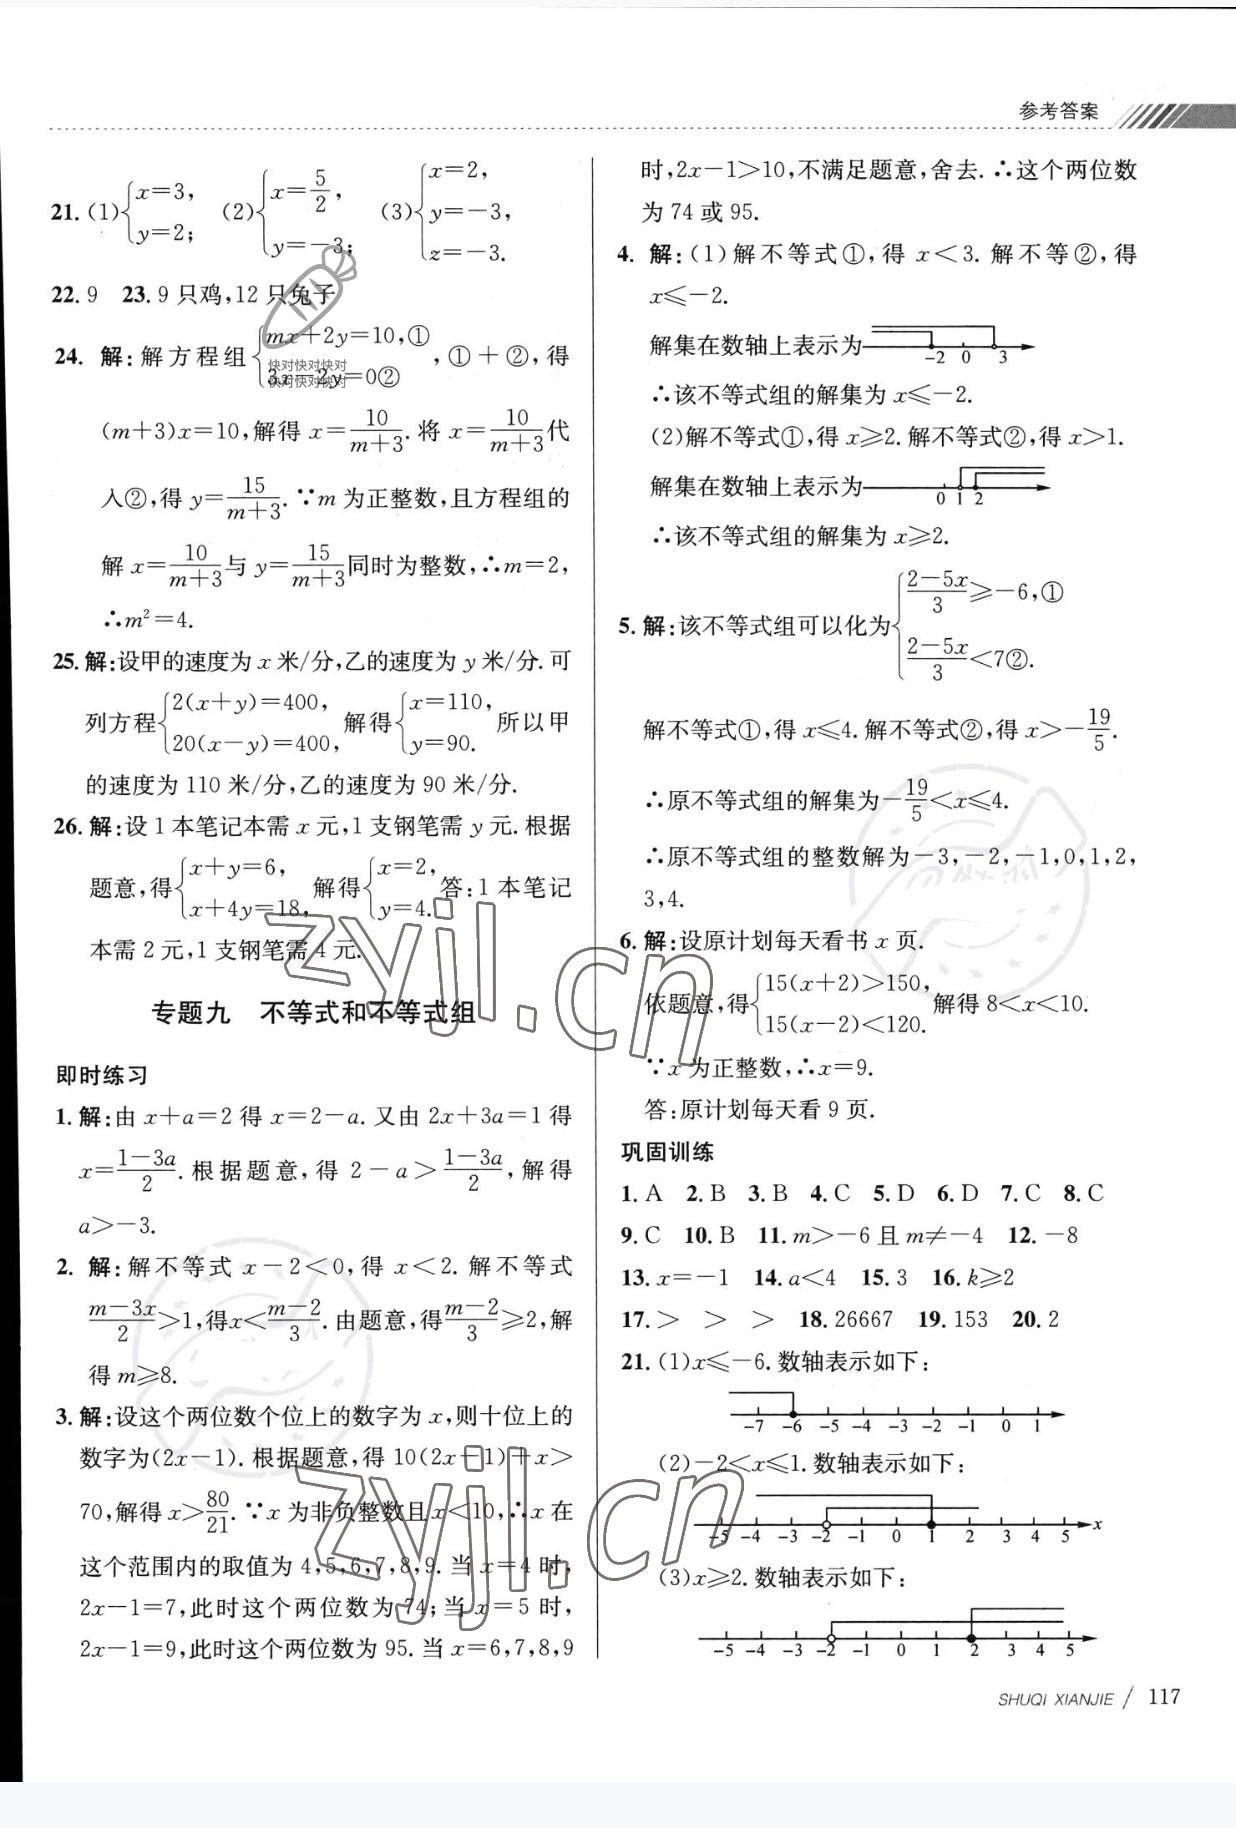 参考答案
21. (1){x=3, y=2; (2){x=5/2, y=-3; (3){x=2, y=-3, z=-3.
22. 9  23. 9只鸡,12只兔子
24. 解:解方程组{mx+2y=10,① 3x-2y=0② ,①+②,得
快对快对快对
快对快对快对
(m+3)x=10,解得 x=10/(m+3). 将 x=10/(m+3)代
入②,得 y=15/(m+3). ∵m 为正整数,且方程组的
解 x=10/(m+3)与 y=15/(m+3)同时为整数,∴m=2,
∴m²=4.
25. 解:设甲的速度为 x 米/分,乙的速度为 y 米/分. 可
列方程{2(x+y)=400, 20(x-y)=400, 解得{x=110, y=90. 所以甲
的速度为 110 米/分,乙的速度为 90 米/分.
26. 解:设 1 本笔记本需 x 元,1 支钢笔需 y 元. 根据
题意,得{x+y=6, x+4y=18, 解得{x=2, y=4. 答:1 本笔记
本需 2 元,1 支钢笔需 4 元.
zyjl.cn
专题九 不等式和不等式组
即时练习
1. 解:由 x+a=2 得 x=2-a. 又由 2x+3a=1 得
x=(1-3a)/2. 根据题意,得 2-a>(1-3a)/2,解得
a>-3.
2. 解:解不等式 x-2<0,得 x<2. 解不等式
(m-3x)/2>1,得x<(m-2)/3. 由题意,得(m-2)/3≥2,解
得 m≥8.
3. 解:设这个两位数个位上的数字为 x,则十位上的
数字为(2x-1). 根据题意,得 10(2x-1)+x>
70,解得 x>80/21. ∵x 为非负整数且 x<10,∴x 在
这个范围内的取值为 4,5,6,7,8,9. 当 x=4 时,
2x-1=7,此时这个两位数为 74;当 x=5 时,
2x-1=9,此时这个两位数为 95. 当 x=6,7,8,9
zyjl.cn
时,2x-1>10,不满足题意,舍去. ∴这个两位数
为 74 或 95.
4. 解:(1)解不等式①,得 x<3. 解不等②,得
x≤-2.
解集在数轴上表示为 -2 0 3
∴该不等式组的解集为 x≤-2.
(2)解不等式①,得 x≥2. 解不等式②,得 x>1.
解集在数轴上表示为 0 1 2
∴该不等式组的解集为 x≥2.
5. 解:该不等式组可以化为{(2-5x)/3≥-6,① (2-5x)/3<7②.
解不等式①,得 x≤4. 解不等式②,得 x>-19/5.
∴原不等式组的解集为-19/5<x≤4.
∴原不等式组的整数解为-3,-2,-1,0,1,2,
3,4.
6. 解:设原计划每天看书 x 页.
依题意,得{15(x+2)>150, 15(x-2)<120. 解得 8<x<10.
∵x 为正整数,∴x=9.
答:原计划每天看 9 页.
巩固训练
1. A  2. B  3. B  4. C  5. D  6. D  7. C  8. C
9. C  10. B  11. m>-6 且 m≠-4  12. -8
13. x=-1  14. a<4  15. 3  16. k≥2
17. >  >  >  18. 26667  19. 153  20. 2
21. (1)x≤-6. 数轴表示如下:
-7 -6 -5 -4 -3 -2 -1 0 1
(2)-2<x≤1. 数轴表示如下:
-5 -4 -3 -2 -1 0 1 2 3 4 5 x
(3)x≥2. 数轴表示如下:
-5 -4 -3 -2 -1 0 1 2 3 4 5
SHUQI XIANJIE / 117